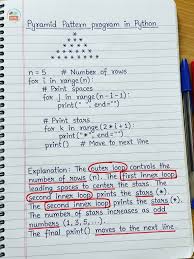 Pyramid Pattern program in Python
*
* * *
* * * * *
* * * * * * *
* * * * * * * * *
n = 5 # Number of rows
for i in range(n):
# Print spaces
for j in range(n-i-1):
print(" ", end="")
# Print stars
for k in range(2*i+1):
print("*", end="")
print() # Move to next line
Explanation: The outer loop controls the
number of rows (n). The first inner loop prints
leading spaces to center the stars. The
second inner loop prints the stars (*).
The second inner loop prints the stars (*).
The number of stars increases as odd
numbers (1, 3, 5, ...).
The final print() moves to the next line